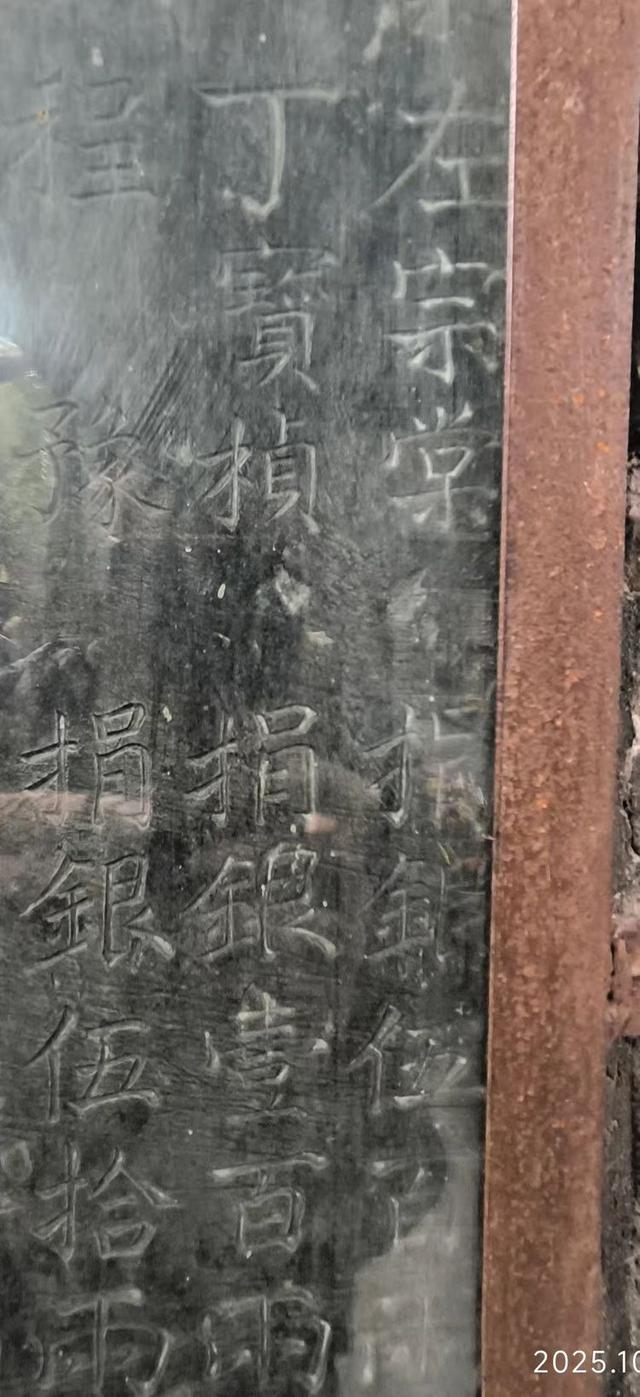 左宗棠 捐銀伍百
丁寶楨 捐銀壹百兩
程 豫 捐銀伍拾兩
2025.10